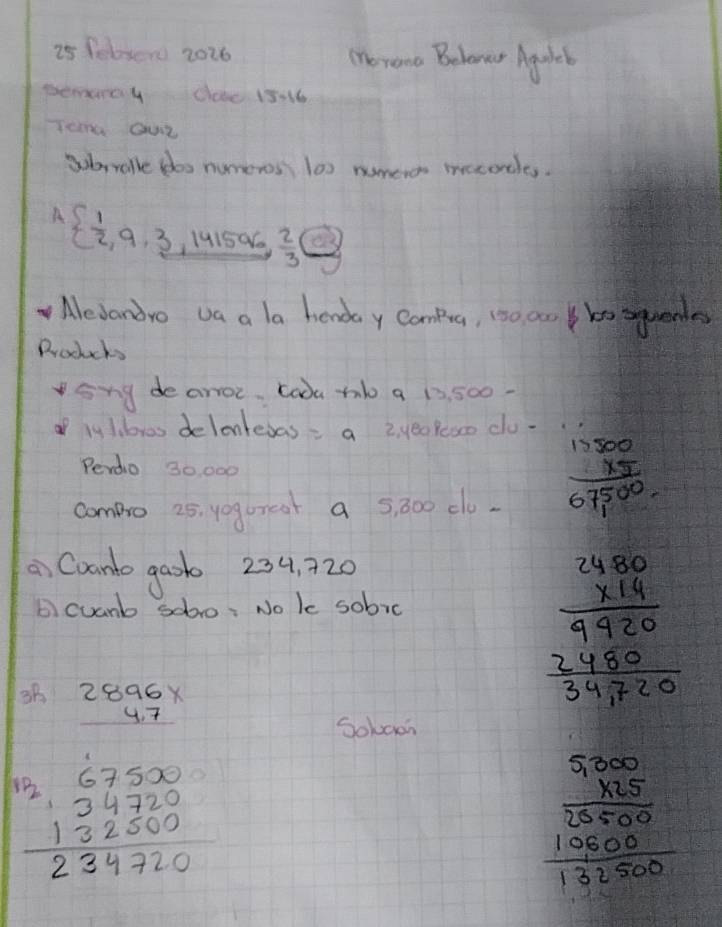 25 Febrero 2026
semana 4 clase 15-16
Tema Quiz
Subrralle los numeros
A { 1/2, 9, 3,141596, 2/3
Alejandro va a la tienda y compra, 150,000 los siguentes
Products
5 kg de arroz. Cada a 13,500 -
14 libras de lentejas = a c/u -
Perdio 30,000
Compro 25. yogurcot a 5,300 c/u -
a) Cuanto gasto 234,720
b) cuanto sobro: No le sobro
13500
x5
67,500.
2480
x14
9920
2480
34,720
3P 2896x
4.7
Solucion
67500
34720
132500
234720
5,300
x25
26500
10600
132500